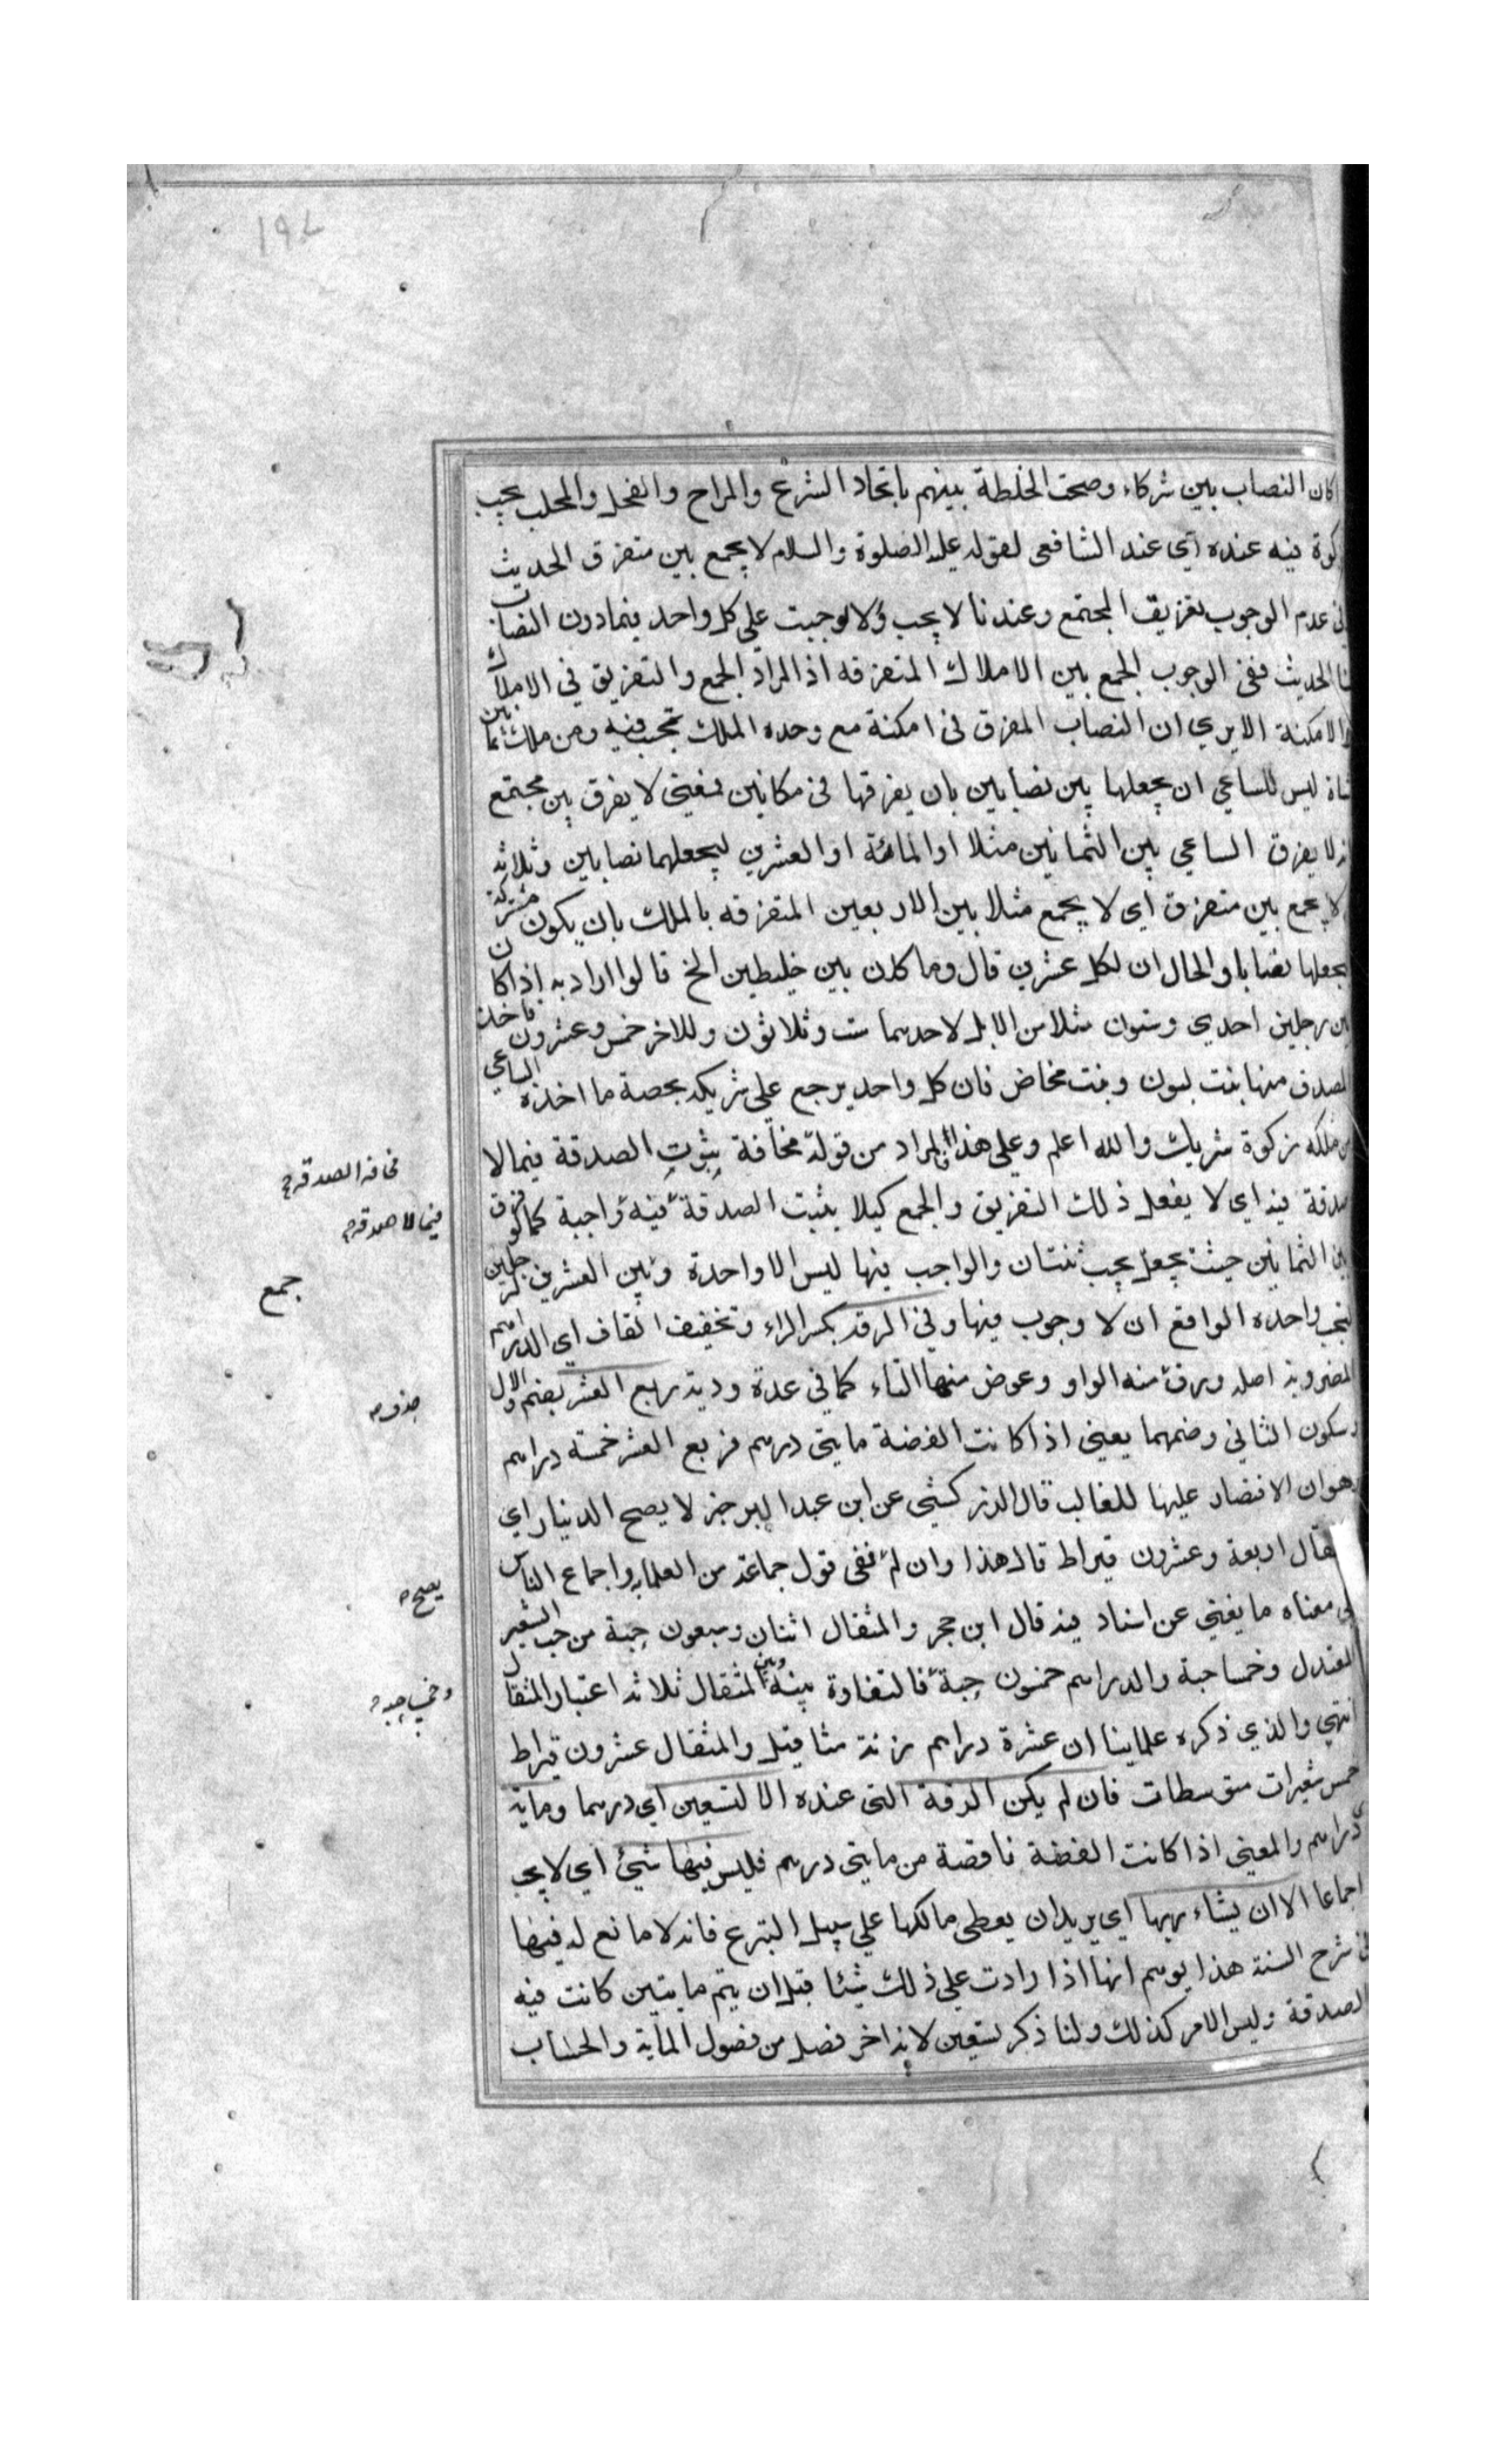 كان النصاب بين شركاء وصحت الخلطة بينهم باتحاد الشرع والمراح والفحل والمحلب يجب
كوة فيه عنده اي عند الشافعى لقوله عليه الصلوة والسلام لا يجمع بين متفرق الحديث
فى عدم الوجوب تفريق المجتمع وعندنا لا يجب ولا لوجبت على كل واحد فيما دون النصاب
نا الحديث ففى الوجوب الجمع بين الاملاك المتفرقه اذ المراد الجمع والتفريق في الاملاك
لا الامكنة الا يري ان النصاب المفرق فى امكنة مع وحده الملك تجب فيه ومن ملك ثمانين
شاة ليس للساعي ان يجعلها بين نصابين بان يفرقها فى مكانين فمعنى لا يفرق بين مجتمع
انه لا يفرق الساعي بين الثمانين مثلا او المائة او العشرين ليجعلهما نصابين وثلاثه
لا يجمع بين متفرق اي لا يجمع مثلا بين الاربعين المتفرقه بالملك بان يكون مشتركة
يجعلها نصابا والحال ان لكل عشرين قال وما كان بين خليطين الخ قالوا اراد به اذا كان
بين رجلين احدي وستون مثلا من الابل لاحدهما ست وثلاثون وللاخر خمس وعشرون فاخذ
المصدق منها بنت لبون وبنت مخاض فان كل واحد يرجع على شريكه بحصة ما اخذه الساعي
من ملكه زكوة شريك والله اعلم وعلى هذا المراد من قوله مخافة بثبوت الصدقة فيما لا
صدقة فيه اي لا يفعل ذلك التفريق والجمع كيلا يثبت الصدقة فيه واجبة كما لو فرق
بين الثمانين حيث يجعل يجب ثنتان والواجب فيها ليس الا واحدة وبين العشرين لرجلين
فيجب واحده الواقع ان لا وجوب فيها وفي الرقه بكسر الراء وتخفيف القاف اي الدراهم
المضروبة اصله ورق منه الواو وعوض منها التاء كما في عدة ودية ربع العشر بضم الاول
وسكون الثاني وضمهما يعنى اذا كانت الفضة مايتى درهم فربع العشر خمسة دراهم
وهو ان الاقتصار عليها للغالب قال الزركشي عن ابن عبد البر خبر لا يصح الدنيار اي
مثقال اربعة وعشرون قيراط قال هذا وان لم ففى قول جماعة من العلماء واجماع الناس
على معناه ما يغني عن اسناد فيه قال ابن حجر والمثقال اثنان وسبعون حبة من حب الشعير
المعتدل وخمسا حبة والدراهم خمسون حبة فالتفاوة بينه وبين المثقال ثلاثه اعتبار المثقال
انتهى والذي ذكره علماينا ان عشرة دراهم زنة مثا قيل والمثقال عشرون قيراط
خمس شعيرات متوسطات فان لم يكن الرقة التى عنده الا لتسعين اي درهما وماية
دراهم والمعنى اذا كانت الفضة ناقصة من مايتى درهم فليس فيها شئ اي لا يجب
اجماعا الا ان يشاء ربها اي يريد ان يعطى مالكها على سبيل التبرع فانه لا مانع له فيها
فى شرح السنة هذا يوهم انها اذا زادت على ذلك شيئا قبل ان يتم مايتين كانت فيه
الصدقة وليس الامر كذلك ولنا ذكر تسعين لانه اخر فصل من فصول الماية والحساب
مخافة الصدقة
فيما لا صدقة
جمع
حذف
يصح
وخمسا حبة